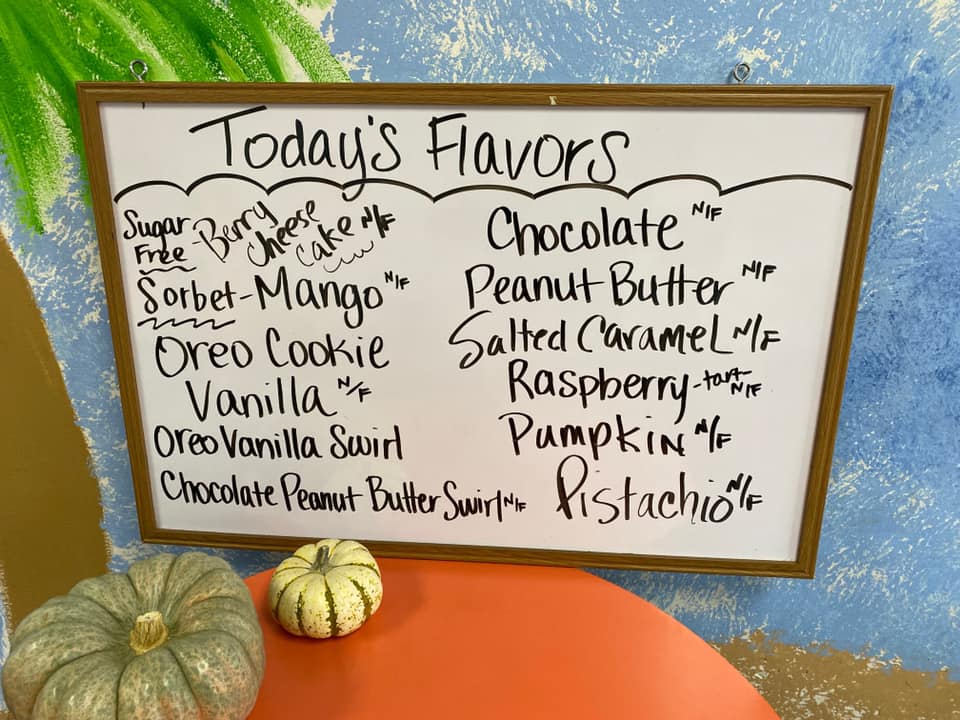 Today's Flavors
Sugar Free - Berry Cheese Cake N/F
Sorbet - Mango N/F
Oreo Cookie
Vanilla N/F
Oreo Vanilla Swirl
Chocolate Peanut Butter Swirl N/F
Chocolate N/F
Peanut Butter N/F
Salted Caramel N/F
Raspberry - tart N/F
Pumpkin N/F
Pistachio N/F